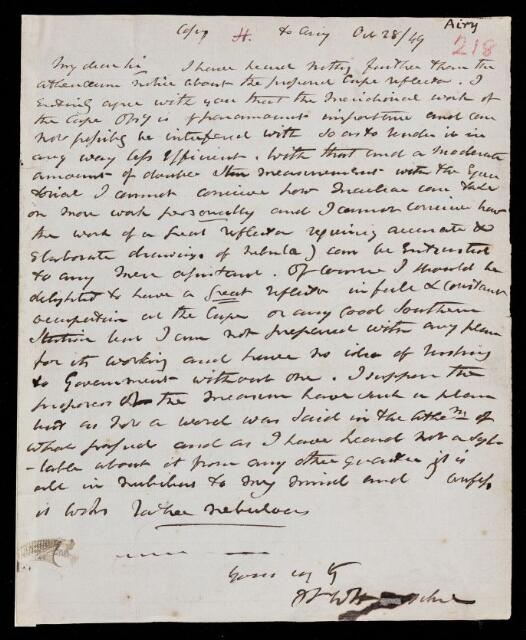 Copy H. to Airy Oct 28/49
Airy
218
My dear Sir I have heard nothing further than the
Athenaeum notice about the proposed Cape reflector. I
Entirely agree with you that the Meridional work of
the Cope Obsy is of paramount importance and can
not possibly be interfered with so as to render it in
any way less Efficient. With that and a moderate
amount of double Star measurement with the Equa-
torial I cannot conceive how Maclear can take
on more work personally and I cannot conceive how
the work of a Great reflector requiring accurate &
Elaborate drawings of nebulae) can be Entrusted
to any mere assistant. Of course I should be
delighted to have a Great reflector in full & constant
occupation at the Cape or any Good Southern
Station but I am not prepared with any plan
for its working and have no idea of
to Government without one. I suppose the
proposers of the measure have such a plan
but as not a word was said in the Athe.m of
what and as I have heard not a syl-
-lable about it from any other quarter it is
all in nubibus to my mind and I confess
it looks rather nebulous
Yours very ty
JFW Herschel